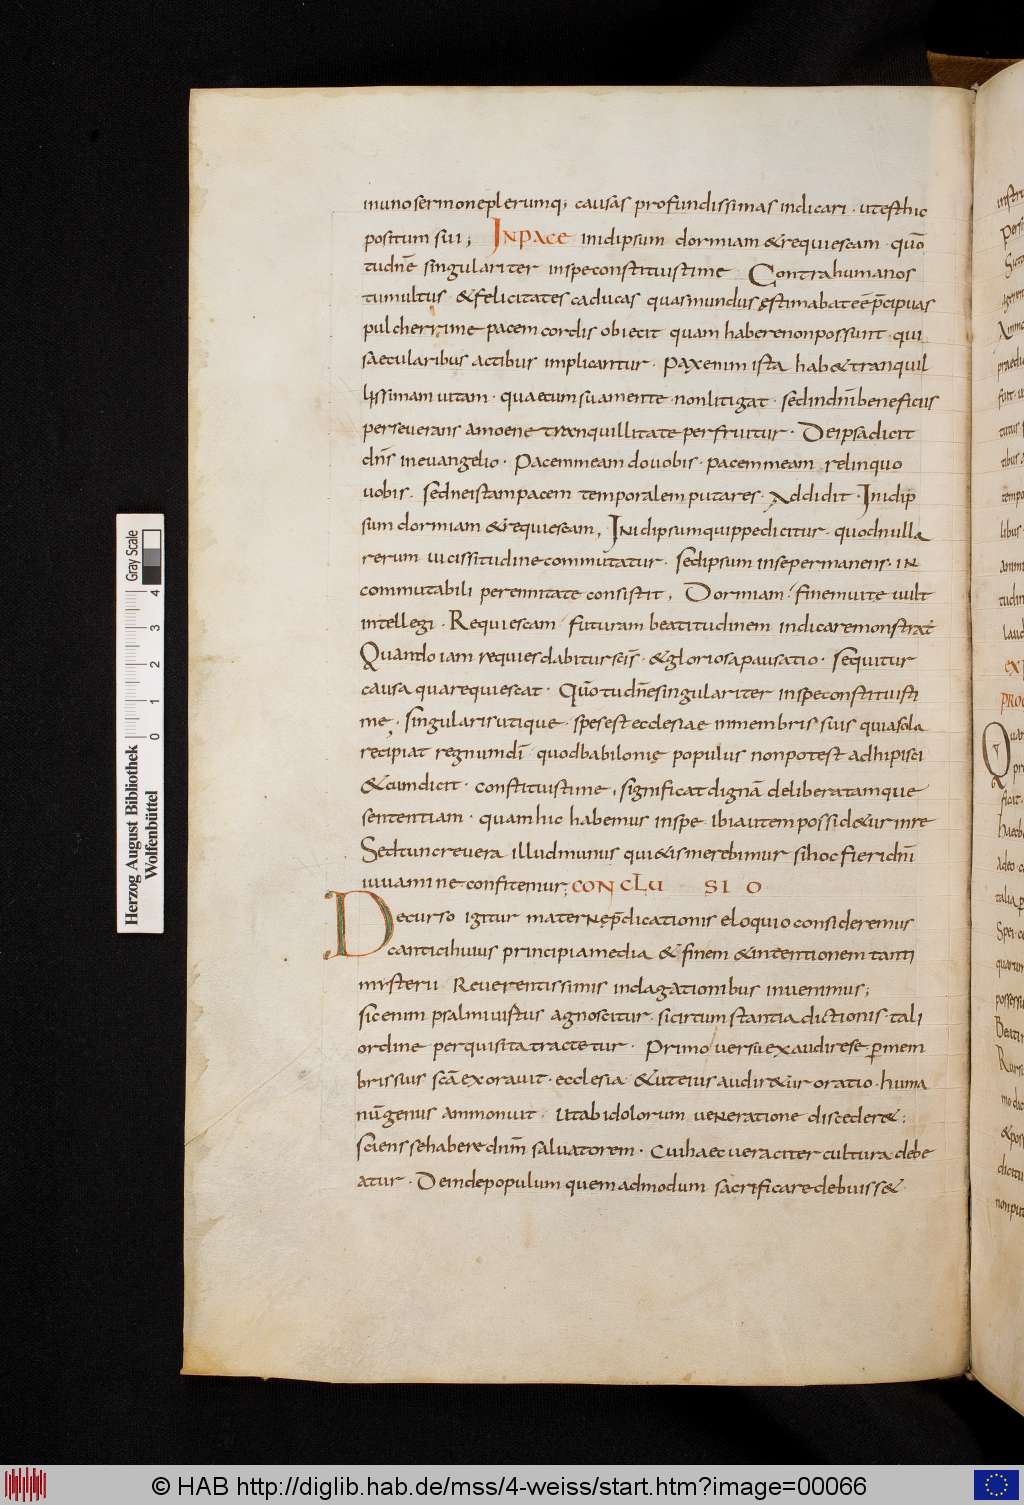 inuno sermone plerumq; causas profundissimas indicari · utesthic
positum sui; INPACE inidipsum dormiam & requiescam · quō
tudñe singulariter inspeconstituistime Contrahumanos
tumultus · & felicitates caducas quasmundus ęstimabateē p̄cipuas
pulcherrime pacem cordis obiecit quam haberenonpossunt · qui
saecularibus actibus implicantur · paxenim ista hab& tranquil
lissimam uitam · quaecumsuamente nonlitigat · sedindnībeneficiis
perseverans amoene tranquillitate perfruitur · Deipsadicit
dn̄s inevangelio · Pacemmeam dovobis · pacemmeam relinquo
vobis · sedneistampacem temporalem putares · Addidit · Inidip
sum dormiam & requiescam, Inidipsumquippedicitur · quodnulla
rerum vicissitudine commutatur · sedipsum inse permanens · IN
commutabili perennitate consistit, Dormiam · finemuite uult
intellegi · Requiescam futuram beatitudinem indicaremonstrat
Quandoiam requies dabitur sc̄is · & gloriosapausatio · sequitur
causa quarequiescat · Quō tudn̄esingulariter inspeconstituisti
me, singularis utique · spesest ecclesiae inmembris suis quiasola
recipiat regnumdī quodbabilonię populus nonpotest adhipisci
& cumdicit · constituistime, significat dignā deliberatamque
sententiam · quamhic habemus inspe ibiautem possid&ur inre
Sedtuncrevera illudmunus qui&ismerebimur sihocfieridnī
iuvamine confitemur; CONCLU SIO
Decurso igitur maternę p̄dicationis eloquio consideremus
canticihuius principiamedia & finem & intentionem tanti
mysterii Reverentissimis indagationibus invenimus;
sicenim psalmiuistus agnoscitur · sicircumstantia dictionis · tali
ordine perquisita tractetur · Primo versu exaudirese p̄ mem
bris suis scām exoravit · ecclesia · & uteius audir&ur oratio · huma
nūgenus ammonuit · utabidolorum veneratione discedere& ;
sciens sehabere dnm̄ salvatorem · cuihaec veraciter cultura debe
atur · Deindepopulum quemadmodum sacrificaredebuiss&
Gray Scale
0 1 2 3 4
Herzog August Bibliothek
Wolfenbüttel
© HAB http://diglib.hab.de/mss/4-weiss/start.htm?image=00066